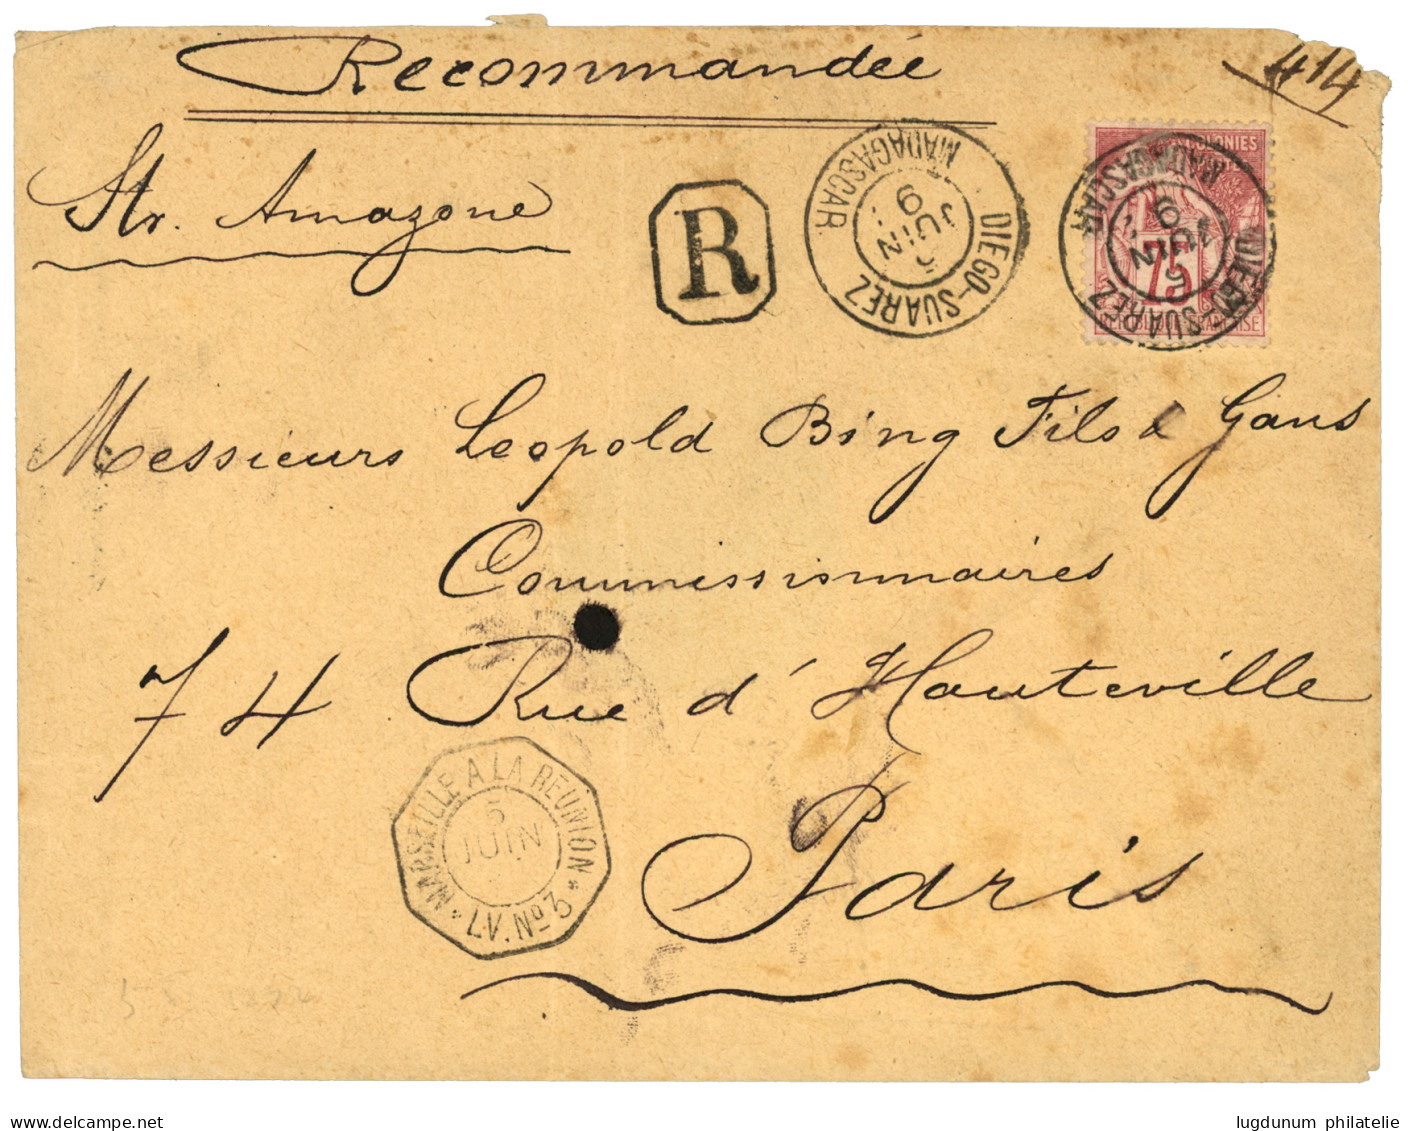 Recommandée
414
Str. Amazone
R
DIEGO-SUAREZ
MADAGASCAR
JUIN
COLONIES
75
DIEGO-SUAREZ
MADAGASCAR
JUIN
Messieurs Leopold Bing Fils & Gans
Commissionnaires
74 Rue d'Hauteville
Paris
MARSEILLE A LA REUNION
5
JUIN
* L.V. No 2 *
www.delcampe.net
lugdunum philatelie